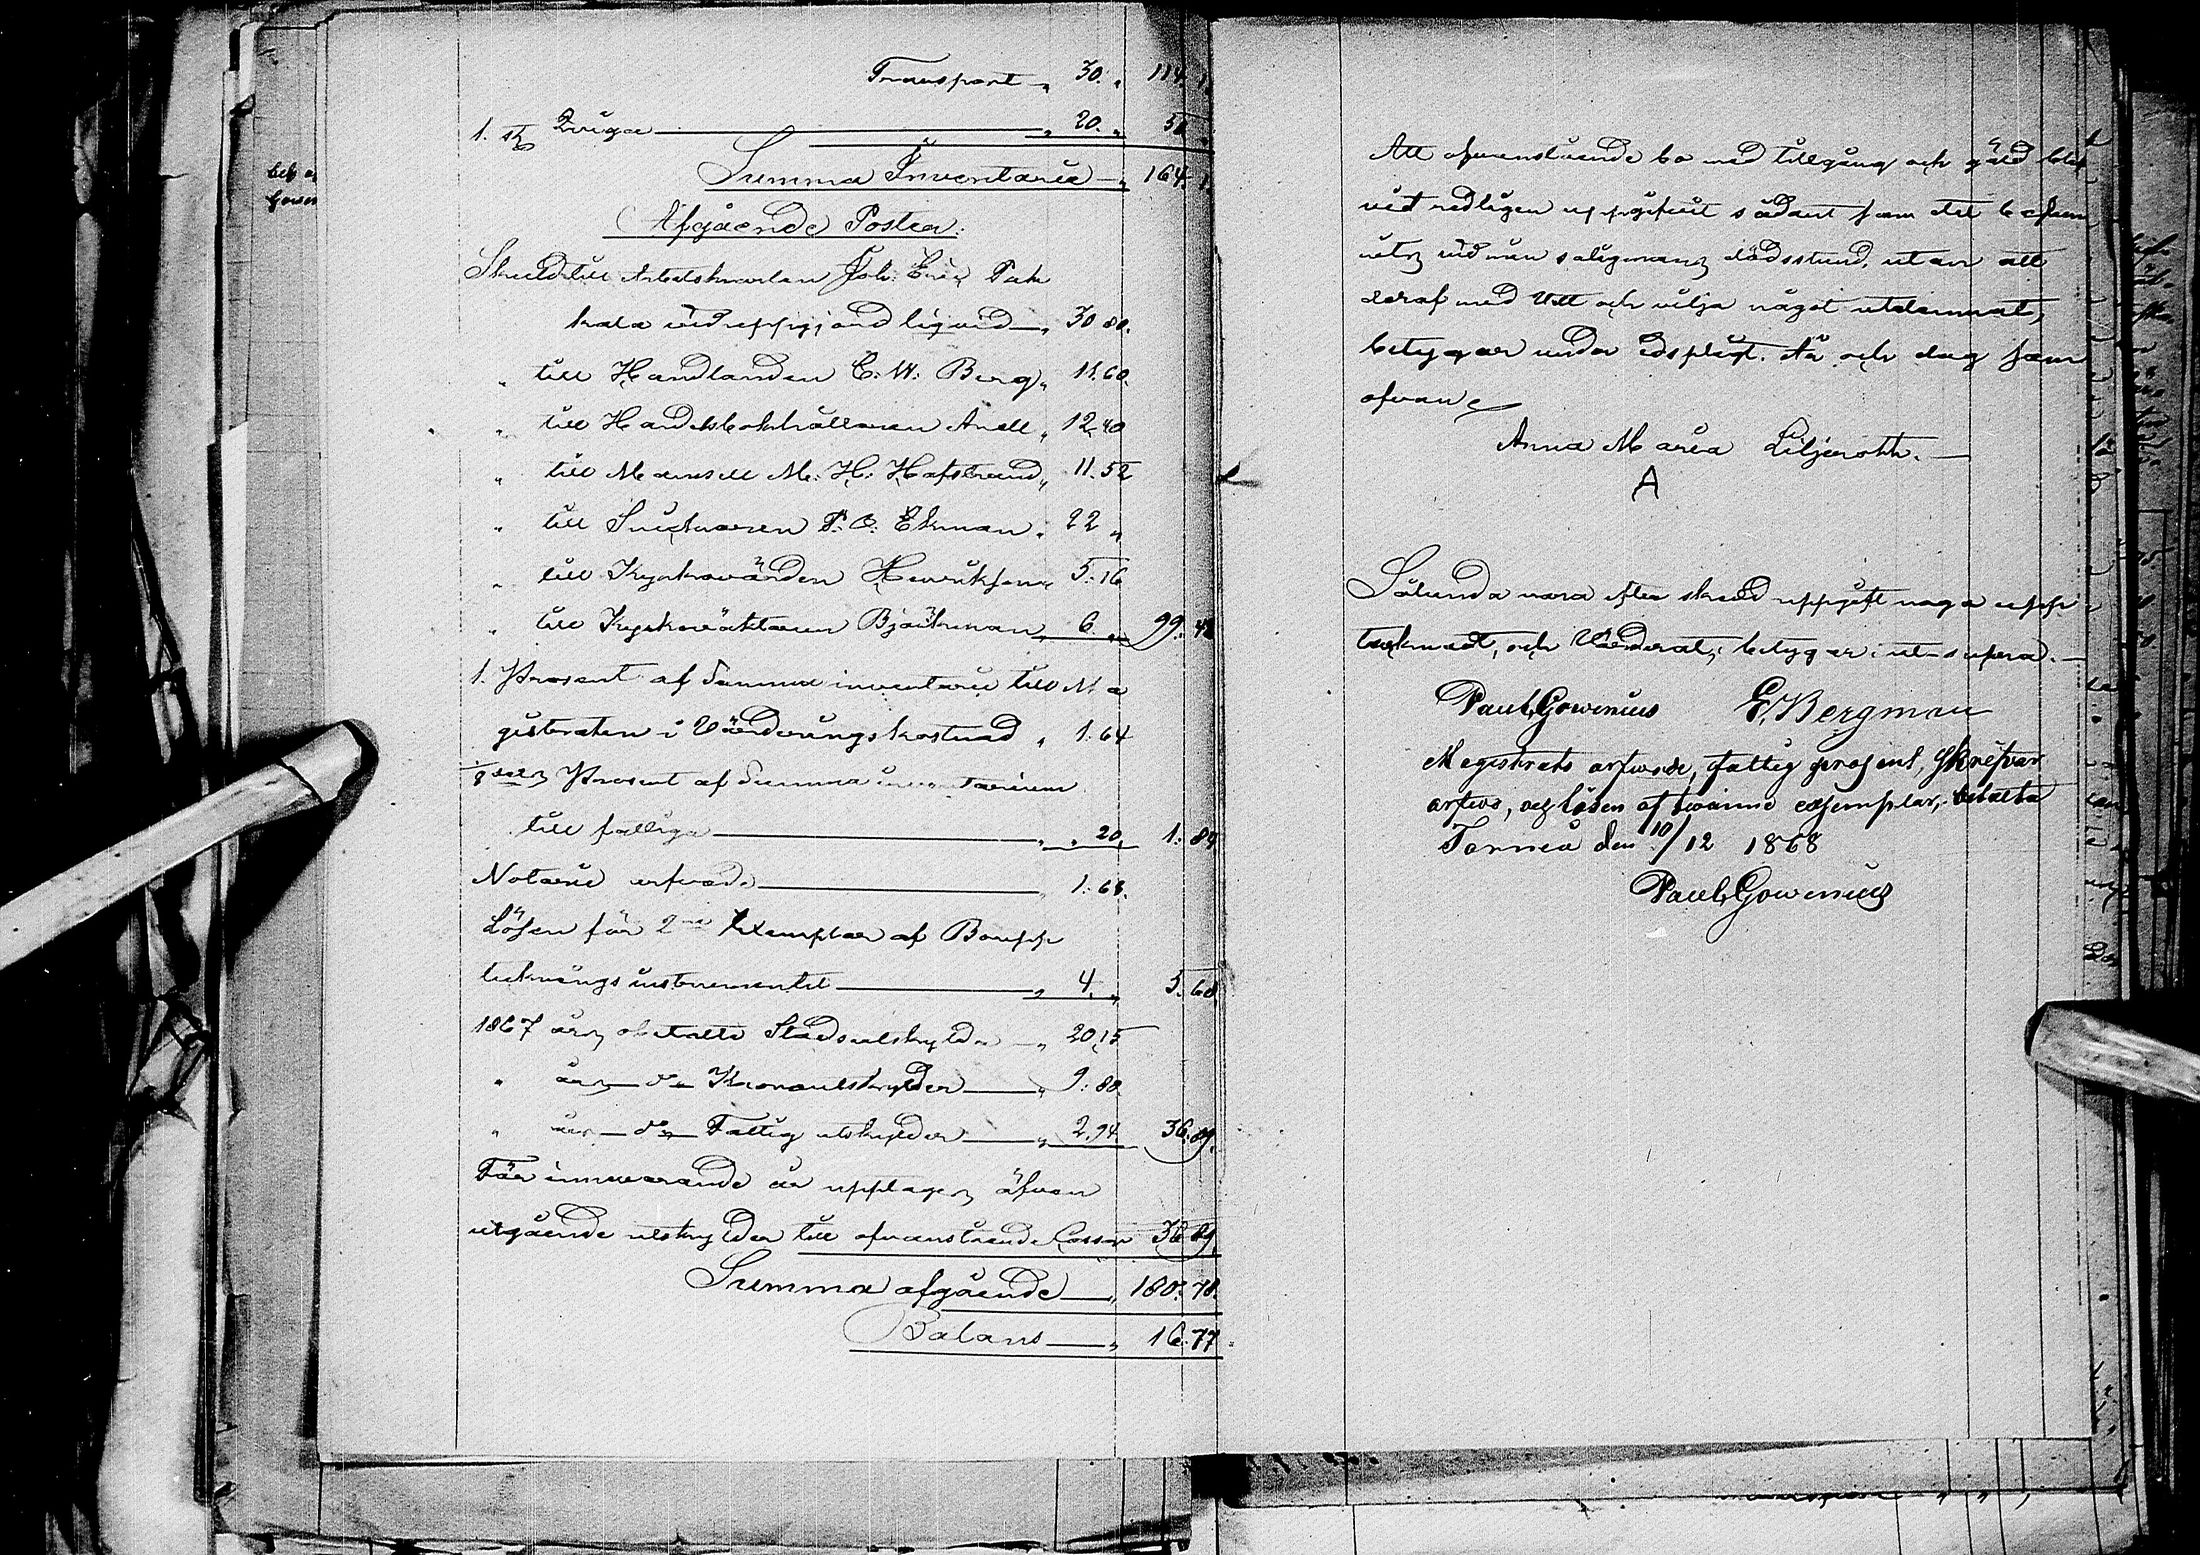 Transport „ 30. „ 114. 1.
1. st Qviga „ 20. „ 50
Summa Inventarie „ 164. 1.
Afgående Poster:
Skuld till Arbetskarlen Joh: Eric Pak
kala vid uppgjord liqvid „ 30 80.
„ till Handlanden C: W: Berg „ 11.60.
„ till Handelsbokhållaren Anell „ 12,40
„ till Mamsell M: H: Hafstrand „ 11.52
„ till Snickaren P: O: Ekman „ 22 „
„ till Kyrkovärden Henriksson „ 5.16
„ till Kyrkoväktaren Björkman „ 6. „ 99. 48
1. Prosent af Summa inventarie till Ma
gistraten i Värderingskostnad „ 1.64
1/8 dels Prosent af Summa inventarium
till fattiga „ „ 20, 1. 84
Notarie arfvode „ 1.68.
Lösen för 2ne Exemplar af Boupp
tecknings instrumentet „ 4. „ 5.68
1867 års obetalte Stadsutskylder „ 20,15
„ års do Kronoutskylder „ 9:80.
„ års do Fattig utskylder „ 2,94 36.89.
För innevarande år upptages äfven
utgående utskylder till ofvanstående Cassor 36 89
Summa afgående „ 180.78.
Balans „ 16.77
Att ofvanstående bo med tillgång och gäld blif
vit redligen uppgifvit sådant som det befun
nits vid min salig mans dödsstund, utan att
deraf med Vett och vilja något utelemnat,
betygar under Edspligt. År och dag som
ofvan
Anna Maria Liljeroth.
A
Sålunda vara efter skedd uppgift noga upp
teknadt, och Värderat, betygar: ut supra.
Paul Gowenius E, Bergman
Magistrats arfvode, fattig prosent, skrifvar
arfvo, och lösen af tvänne exsemplar, betalta
Torneå den 10/12 1868
Paul Gowenius